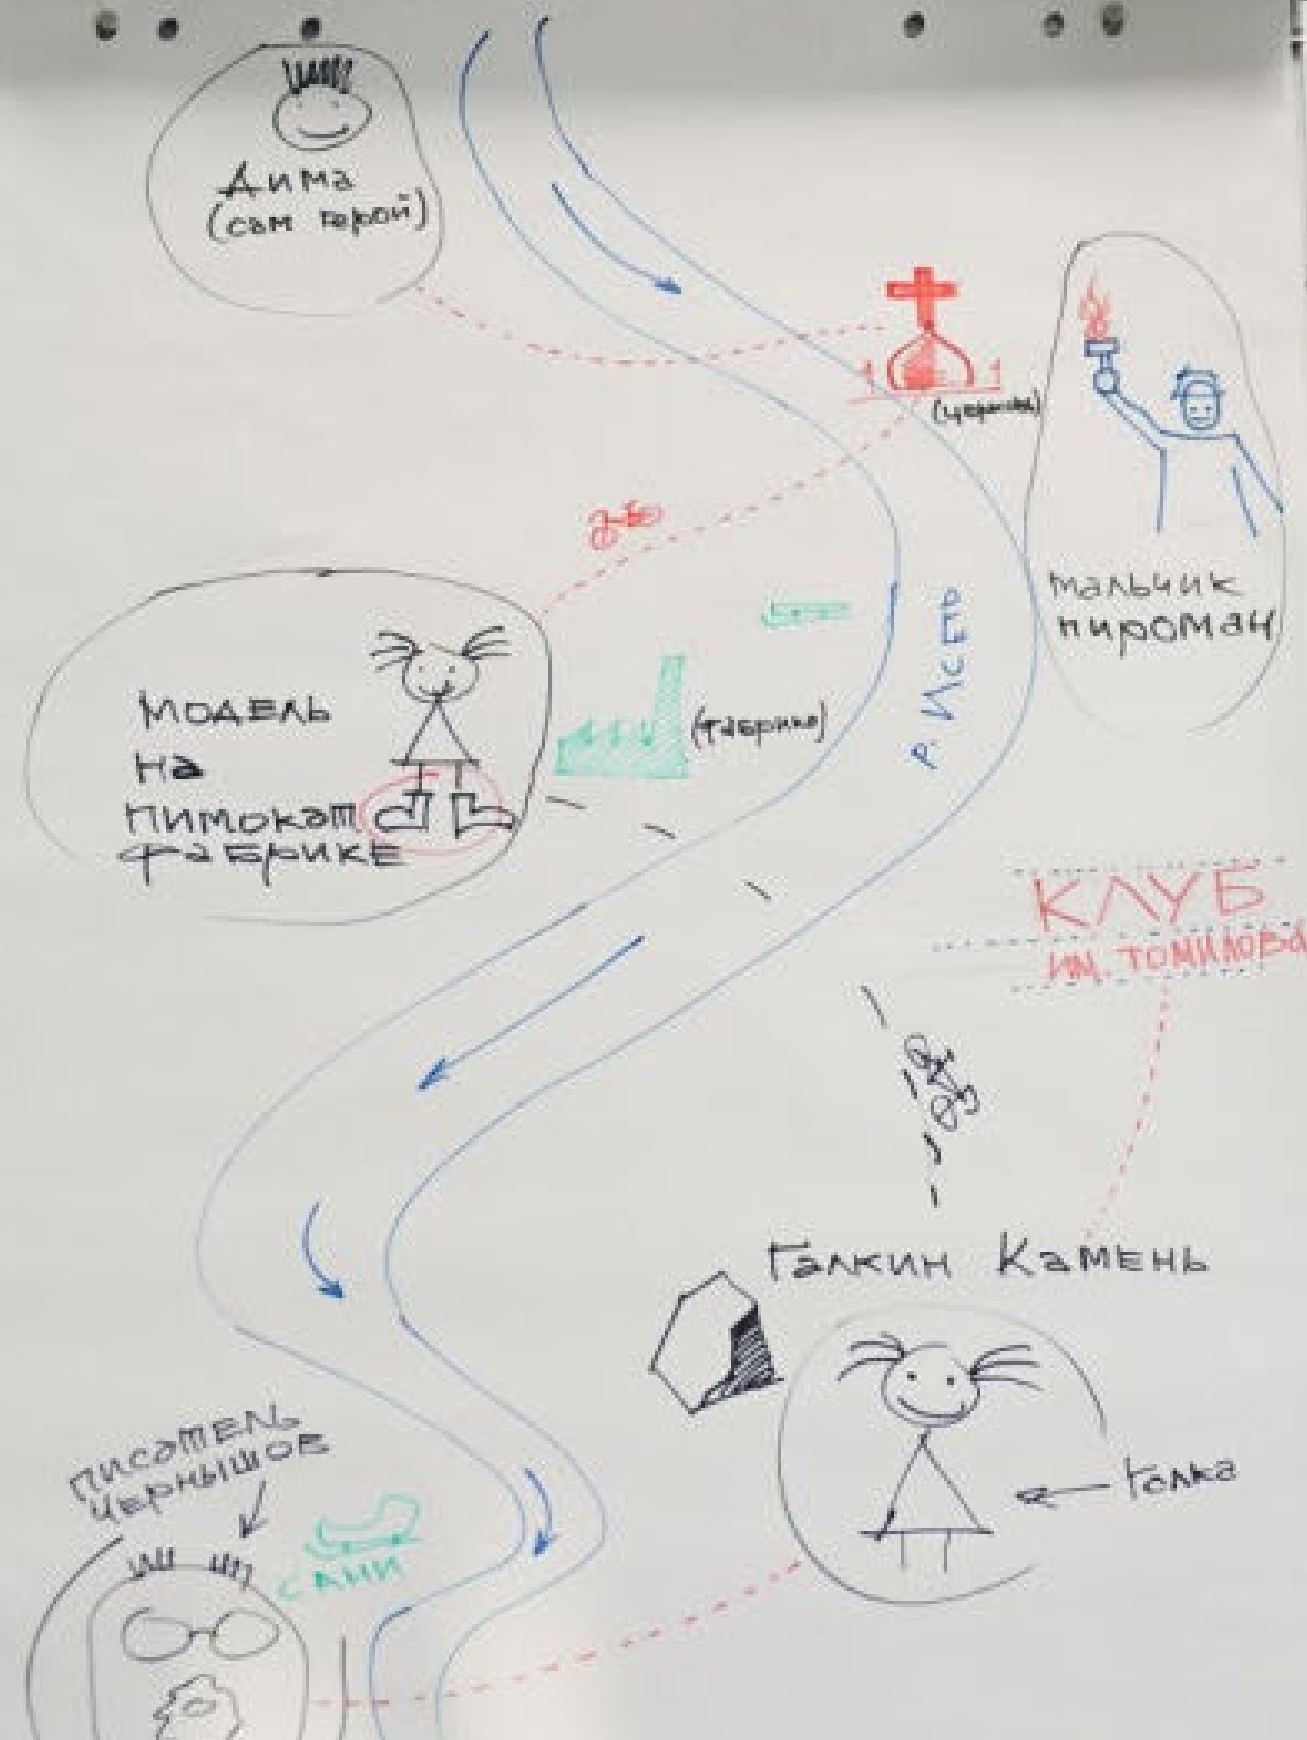 Дима
(сам герой)
(церковь)
мальчик
пироман
р. Исеть
модель
на
пимокат
фабрике
(фабрика)
КЛУБ
ИМ. ТОМИЛОВА
Галкин Камень
писатель
Чернышов
Галка
сани